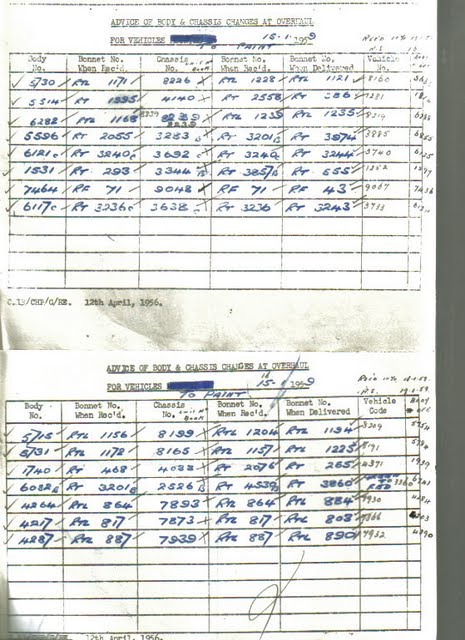 ADVICE OF BODY & CHASSIS CHANGES AT OVERHAUL
FOR VEHICLES TO PAINT 15-1-1959
Body No. Bonnet No. When Rec'd. Chassis No. Bonnet No. When Rec'd. Bonnet No. When Delivered Vehicle No.
5730 RTL 1171 8226 RTL 1228 RTL 1121 8160
5514 RT 1335 4140 RT 2558 RT
6282 RTL 1168 8239 RTL 1239 RTL 1235 8219
5596 RT 2055 3283 RT 3201 RT 3974 3885
6121c RT 3240c 3692c RT 3240c RT 3244 3740
1531 RT 293 3344 RT 3857 RT 555
7464 RF 71 9048 RF 71 RF 43 9067 7436
6117c RT 3236c 3638c RT 3236 RT 3243 3733
C.13/CHP/G/RE. 12th April, 1956.
ADVICE OF BODY & CHASSIS CHANGES AT OVERHAUL
FOR VEHICLES TO PAINT 1959
Body No. Bonnet No. When Rec'd. Chassis No. Bonnet No. When Rec'd. Bonnet No. When Delivered Vehicle Code
5715 RTL 1156 8199 RTL 1204 RTL 1194 8209
5731 RTL 1172 8165 RTL 1157 RTL 1225
1740 RT 468 4033 RT 2076 RT 265
6082 RT 3201 2526 RT 4539 RT 3860
4264 RTL 864 7893 RTL 864 RTL 884 7930
4217 RTL 817 7873 RTL 817 RTL 808 7866
4287 RTL 887 7939 RTL 887 RTL 890 7932
12th April, 1956.